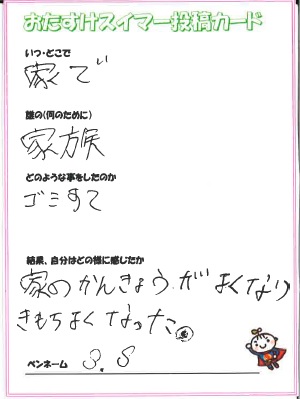 おたすけスイマー投稿カード
いつ・どこで
家で
誰の(何のために)
家族
どのような事をしたのか
ゴミすて
結果、自分はどの様に感じたか
家のかんきょうがよくなり
きもちよくなった。
ペンネーム 3.8